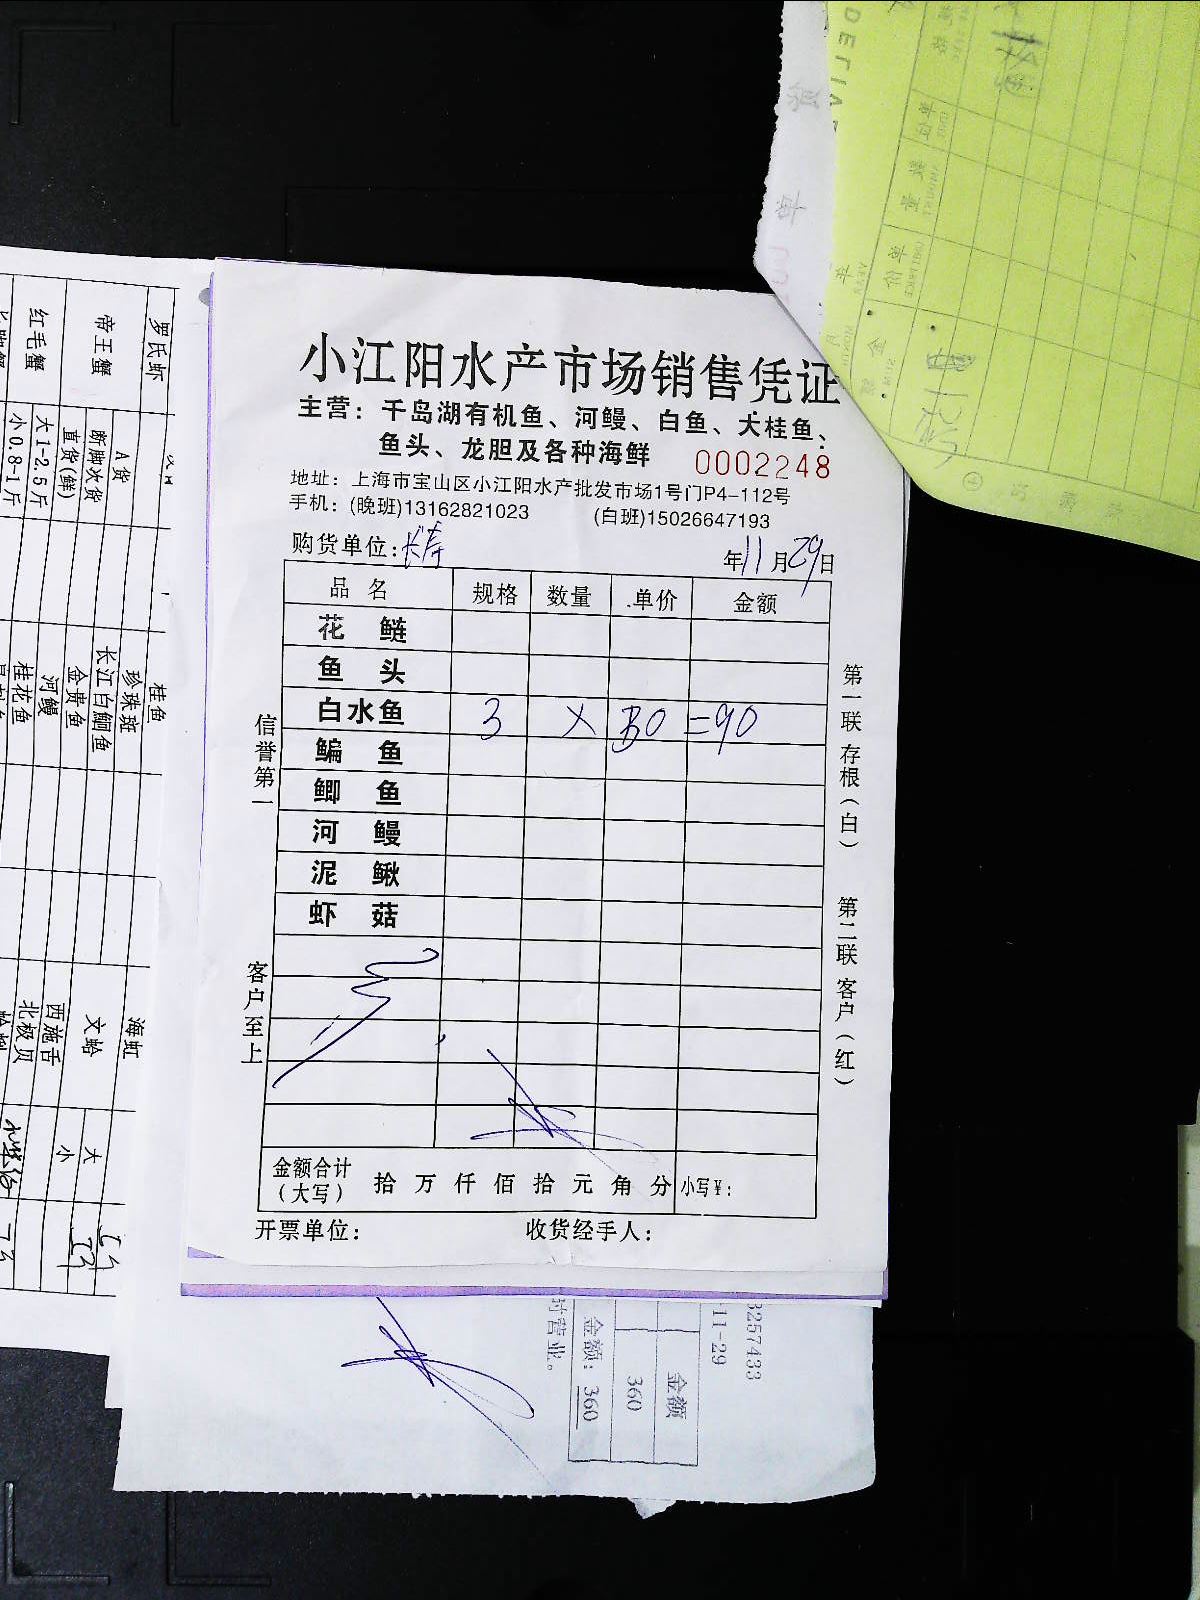 小江阳水产市场销售凭证
主营：千岛湖有机鱼、河鳗、白鱼、大桂鱼、
鱼头、龙胆及各种海鲜 0002248
地址：上海市宝山区小江阳水产批发市场1号门P4-112号
手机：(晚班)13162821023 (白班)15026647193
购货单位：长寿 年11月29日
品名 规格 数量 单价 金额
花鲢
鱼头
白水鱼 3 × 30 =90
鳊鱼
鲫鱼
河鳗
泥鳅
虾菇
金额合计（大写） 拾 万 仟 佰 拾 元 角 分 小写￥：
开票单位： 收货经手人：
信誉第一 客户至上
第一联存根（白） 第二联客户（红）
罗氏虾
帝王蟹 A货
断脚次货
直货(鲜)
红毛蟹 大1-2.5斤
小0.8-1斤
桂鱼
珍珠斑
长江白鮰鱼
金贵鱼
河鳗
桂花鱼
海虹
文蛤 大
小
西施舌
北极贝
3257433
11-29
金额
360
金额：360
时营业。